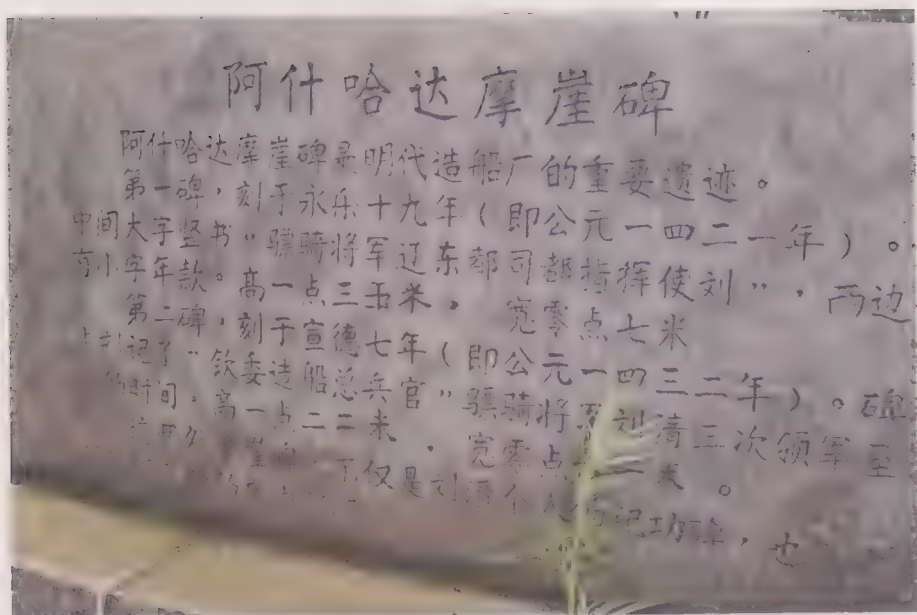 阿什哈达摩崖碑
阿什哈达摩崖碑是明代造船厂的重要遗迹。
第一碑，刻于永乐十九年（即公元一四二一年）。
中间大字竖书“骠骑将军辽东都司都指挥使刘”，两边
有小字年款。高一点三五米，宽零点七米
第二碑，刻于宣德七年（即公元一四三二年）。碑
上刻记了“钦委造船总兵官”骠骑将军刘清三次领军至
的时间。高一点二二米，宽零点
不仅是刘清个人的记功碑，也